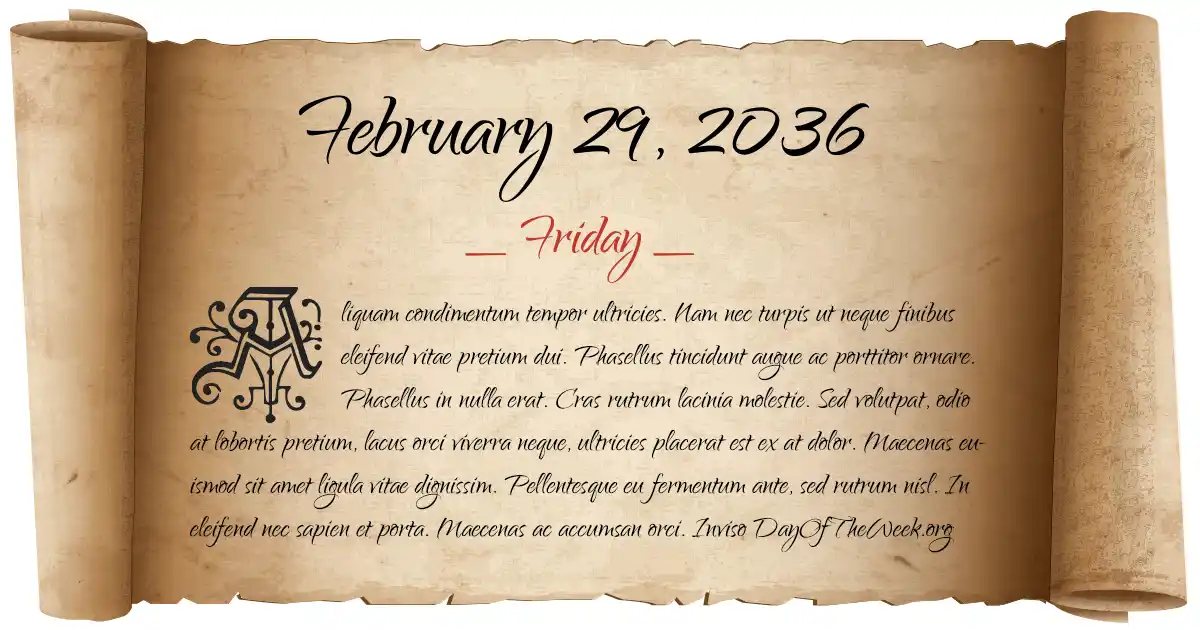 February 29, 2036
— Friday —
Aliquam condimentum tempor ultricies. Nam nec turpis ut neque finibus
eleifend vitae pretium dui. Phasellus tincidunt augue ac porttitor ornare.
Phasellus in nulla erat. Cras rutrum lacinia molestie. Sed volutpat, odio
at lobortis pretium, lacus orci viverra neque, ultricies placerat est ex at dolor. Maecenas eu-
ismod sit amet ligula vitae dignissim. Pellentesque eu fermentum ante, sed rutrum nisl. In
eleifend nec sapien et porta. Maecenas ac accumsan orci. Inviso DayOfTheWeek.org